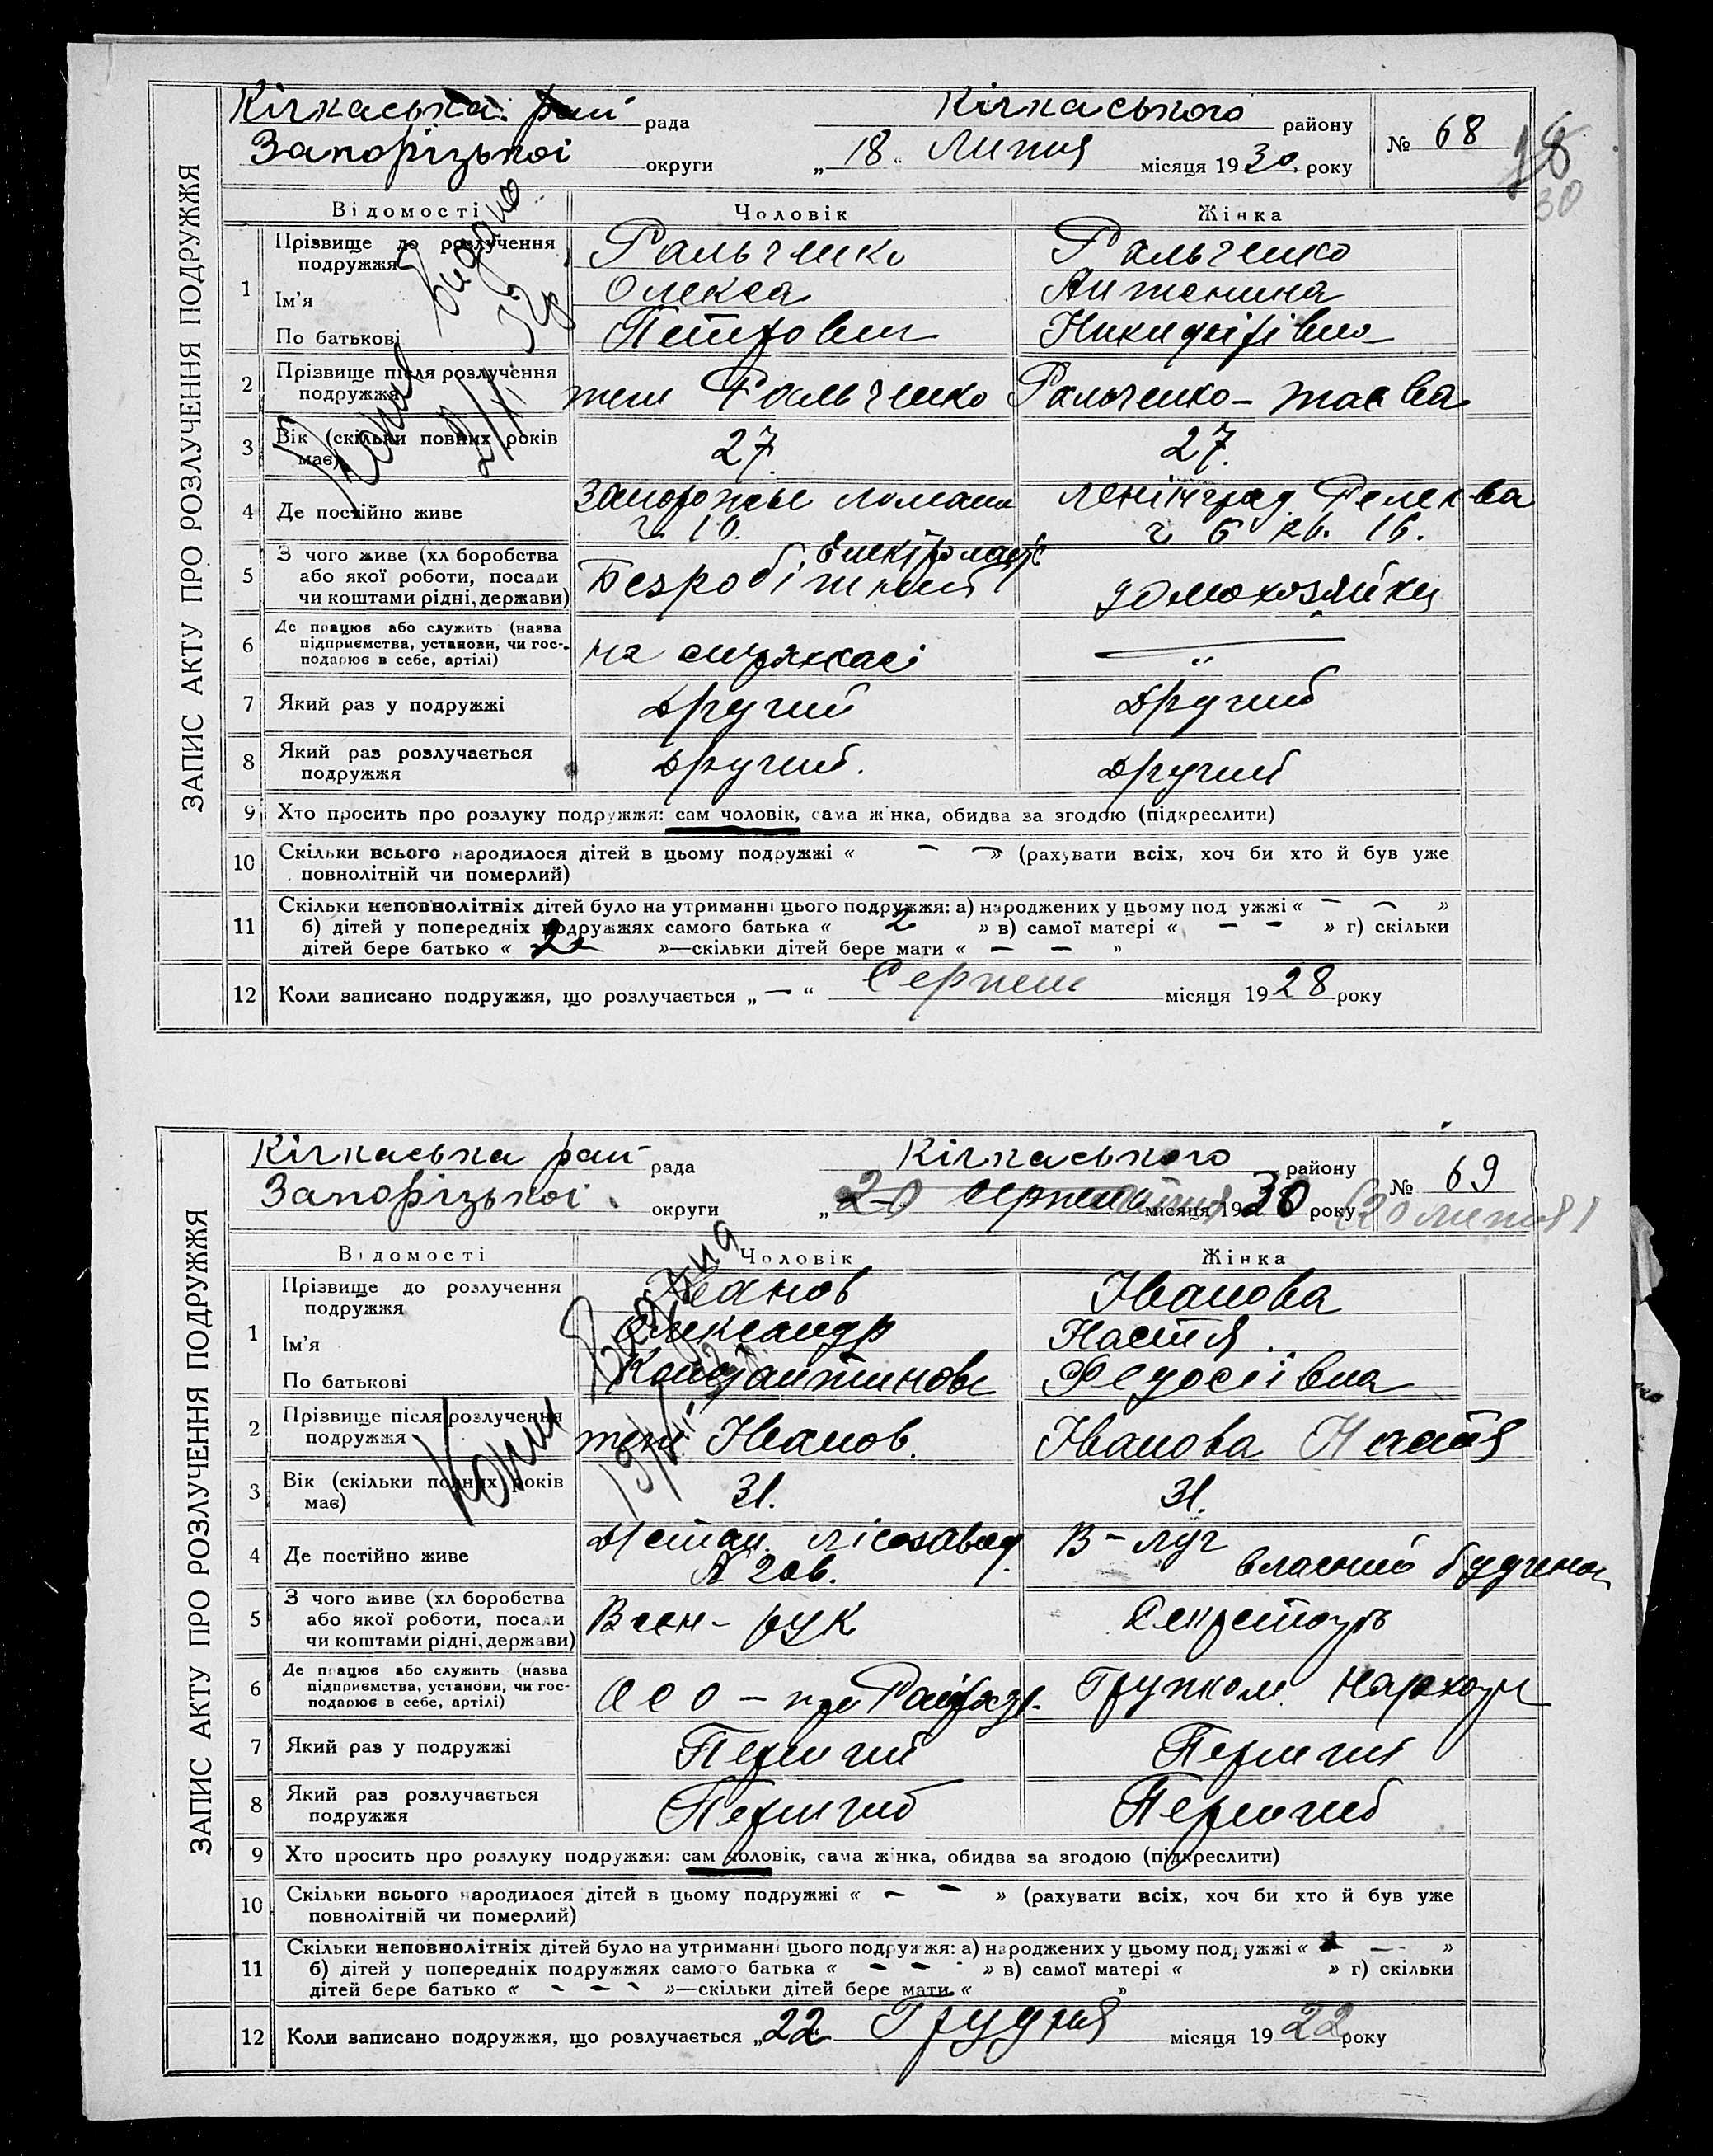 ЗАПИС АКТУ ПРО РОЗЛУЧЕННЯ ПОДРУЖЖЯ
Кічкаська рай рада Кічкаського району № 68
Запорізької округи „ 18 “ Липня місяця 1930 року
30
Відомості Чоловік Жінка
1 Прізвище до розлучення подружжя Ральченко Ральченко
Ім'я Олекса Антонина
По батькові Петрович Никифорівна
2 Прізвище після розлучення подружжя теж Ральченко Ральченко
3 Вік (скільки повних років має) 27 27.
4 Де постійно живе Запорожье Ленінград
ч 10. ч 6 кв. 16.
5 З чого живе (хліборобства
або якої роботи, посади
чи коштами рідні, держави) Безробітний домохозяйка
6 Де працює або служить (назва
підприємства, установи, чи гос-
подарює в себе, артілі) на страхкасі —
7 Який раз у подружжі Другий Другий
8 Який раз розлучається
подружжя Другий. Другий
9 Хто просить про розлуку подружжя: сам чоловік, сама жінка, обидва за згодою (підкреслити)
10 Скільки всього народилося дітей в цьому подружжі « — — » (рахувати всіх, хоч би хто й був уже
повнолітній чи померлий)
11 Скільки неповнолітніх дітей було на утриманні цього подружжя: а) народжених у цьому подружжі « — — »
б) дітей у попередніх подружжях самого батька « 2 » в) самої матері « — — » г) скільки
дітей бере батько « 2 »—скільки дітей бере мати « — — »
12 Коли записано подружжя, що розлучається „ — “ Серпень місяця 1928 року
Копія видана
ЗАПИС АКТУ ПРО РОЗЛУЧЕННЯ ПОДРУЖЖЯ
Кічкаська рай рада Кічкаського району № 69
Запорізької округи „ 20 серпень місяця 1930 року (20 липня)
Відомості Чоловік Жінка
1 Прізвище до розлучення
подружжя Іванов Іванова
Ім'я Олександр Настя
По батькові Константинов Федосіївна
2 Прізвище після розлучення
подружжя теж Іванов. Іванова Настя
3 Вік (скільки повних років
має) 31. 31.
4 Де постійно живе лісозавод В-луг
власний будинок
5 З чого живе (хліборобства
або якої роботи, посади
чи коштами рідні, держави) Воен-рук Секретарь
6 Де працює або служить (назва
підприємства, установи, чи гос-
подарює в себе, артілі) при Райраді. Групком
7 Який раз у подружжі Перший Перший
8 Який раз розлучається
подружжя Перший Перший
9 Хто просить про розлуку подружжя: сам чоловік, сама жінка, обидва за згодою (підкреслити)
10 Скільки всього народилося дітей в цьому подружжі « — — » (рахувати всіх, хоч би хто й був уже
повнолітній чи померлий)
11 Скільки неповнолітніх дітей було на утриманні цього подружжя: а) народжених у цьому подружжі « — »
б) дітей у попередніх подружжях самого батька « — — » в) самої матері « » г) скільки
дітей бере батько « — — »—скільки дітей бере мати « »
12 Коли записано подружжя, що розлучається „22 Грудня місяця 1922 року
Копія видана